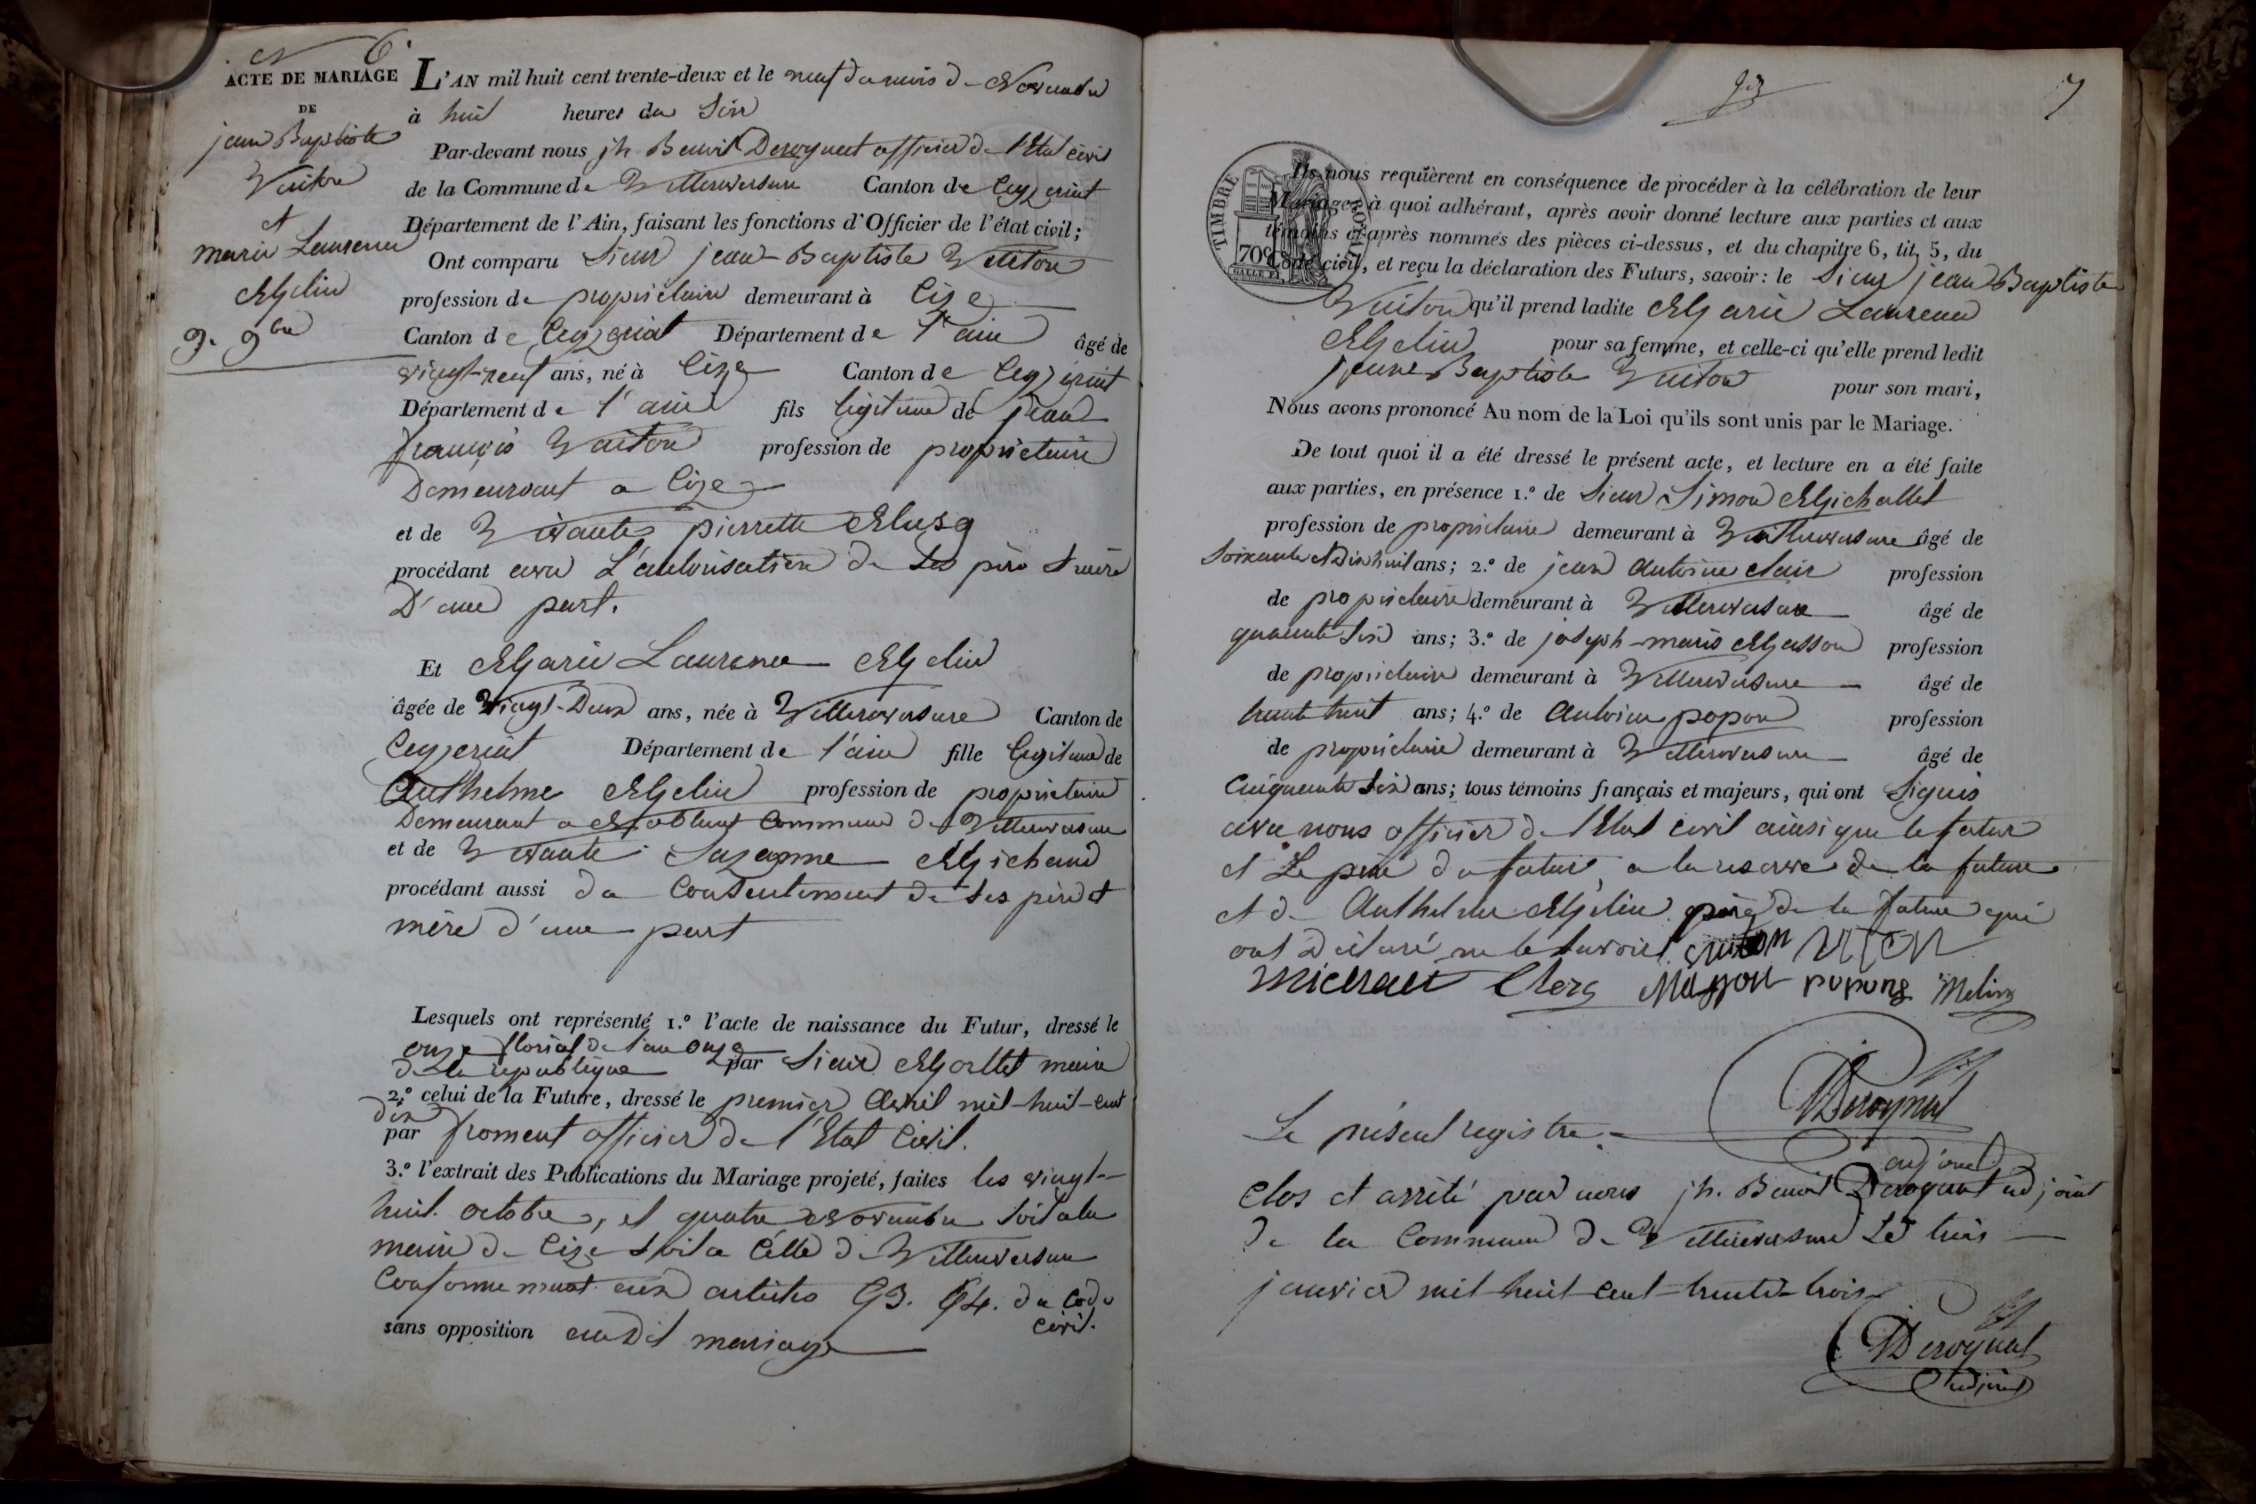 N 6.
ACTE DE MARIAGE
DE
jean Baptiste
Vuiton
et
marie Laurence
Melin
9. 9bre
L'AN mil huit cent trente-deux et le neuf du mois de Novembre
à huit heures du Soir
Par-devant nous jh Benoit Derognat officier de l'Etat civil
de la Commune de Villereversure Canton de Ceyzeriat
Département de l'Ain, faisant les fonctions d'Officier de l'état civil;
Ont comparu Sieur jean-Baptiste Vuiton
profession de propriétaire demeurant à Cize
Canton de Ceyzeriat Département de l'ain âgé de
vingt-neuf ans, né à Cize Canton de Ceyzeriat
Département de l'ain fils légitime de jean
françois Vuiton profession de propriétaire
Demeurant a Cize
et de Vivante pierrette
procédant avec L'autorisation de Ses père & mère
D'une part.
Et Marie Laurence Melin
âgée de Vingt-Deux ans, née à Villereversure Canton de
Ceyzeriat Département de l'ain fille légitime de
Anthelme Melin profession de propriétaire
Demeurant a commune de Villereversure
et de Vivante Suzanne Michaud
procédant aussi du Consentement de Ses père et
mère d'une part
Lesquels ont représenté 1.º l'acte de naissance du Futur, dressé le
onze floréal de l'an onze
de la république par Sieur Morllet maire
2.º celui de la Future, dressé le premier Avril mil-huit-cent
dix
par froment officier de l'Etat Civil.
3.º l'extrait des Publications du Mariage projeté, faites les vingt-
huit octobre, et quatre Novembre Soit a la
mairie de Cize Soit a Celle de Villereversure
Conformement aux articles 63. 64. du Code
civil.
sans opposition audit mariage
7
TIMBRE ROYAL
70c
Ils nous requièrent en conséquence de procéder à la célébration de leur
Mariage; à quoi adhérant, après avoir donné lecture aux parties et aux
témoins ci-après nommés des pièces ci-dessus, et du chapitre 6, tit, 5, du
Code civil, et reçu la déclaration des Futurs, savoir: le Sieur jean Baptiste
Vuiton qu'il prend ladite Marie Laurence
Melin pour sa femme, et celle-ci qu'elle prend ledit
jean Baptiste Vuiton pour son mari,
Nous avons prononcé Au nom de la Loi qu'ils sont unis par le Mariage.
De tout quoi il a été dressé le présent acte, et lecture en a été faite
aux parties, en présence 1.º de Sieur Simon Michallet
profession de propriétaire demeurant à Villereversure âgé de
Soixante et Dix huit ans; 2.º de jean Antoine clair profession
de propriétaire demeurant à Villereversure âgé de
quarante Six ans; 3.º de joseph-marie Masson profession
de propriétaire demeurant à Villereversure âgé de
trente huit ans; 4.º de Antoine popon profession
de propriétaire demeurant à Villereversure âgé de
Cinquante Six ans; tous témoins français et majeurs, qui ont Signés
avec nous officier de l'Etat civil ainsi que le futur
et Le père du futur, a la reserve de la future
et de Anthelme Melin père de la future qui
ont Déclaré ne le Savoir.
Masson popong Melin
Derognat
adjoint
Le présent registre
clos et arrêté par nous jh. Benoit Derognat adjoint
de la Commune de Villereversure Le trois
janvier mil-huit-cent-trente-trois
Derognat
adjoint